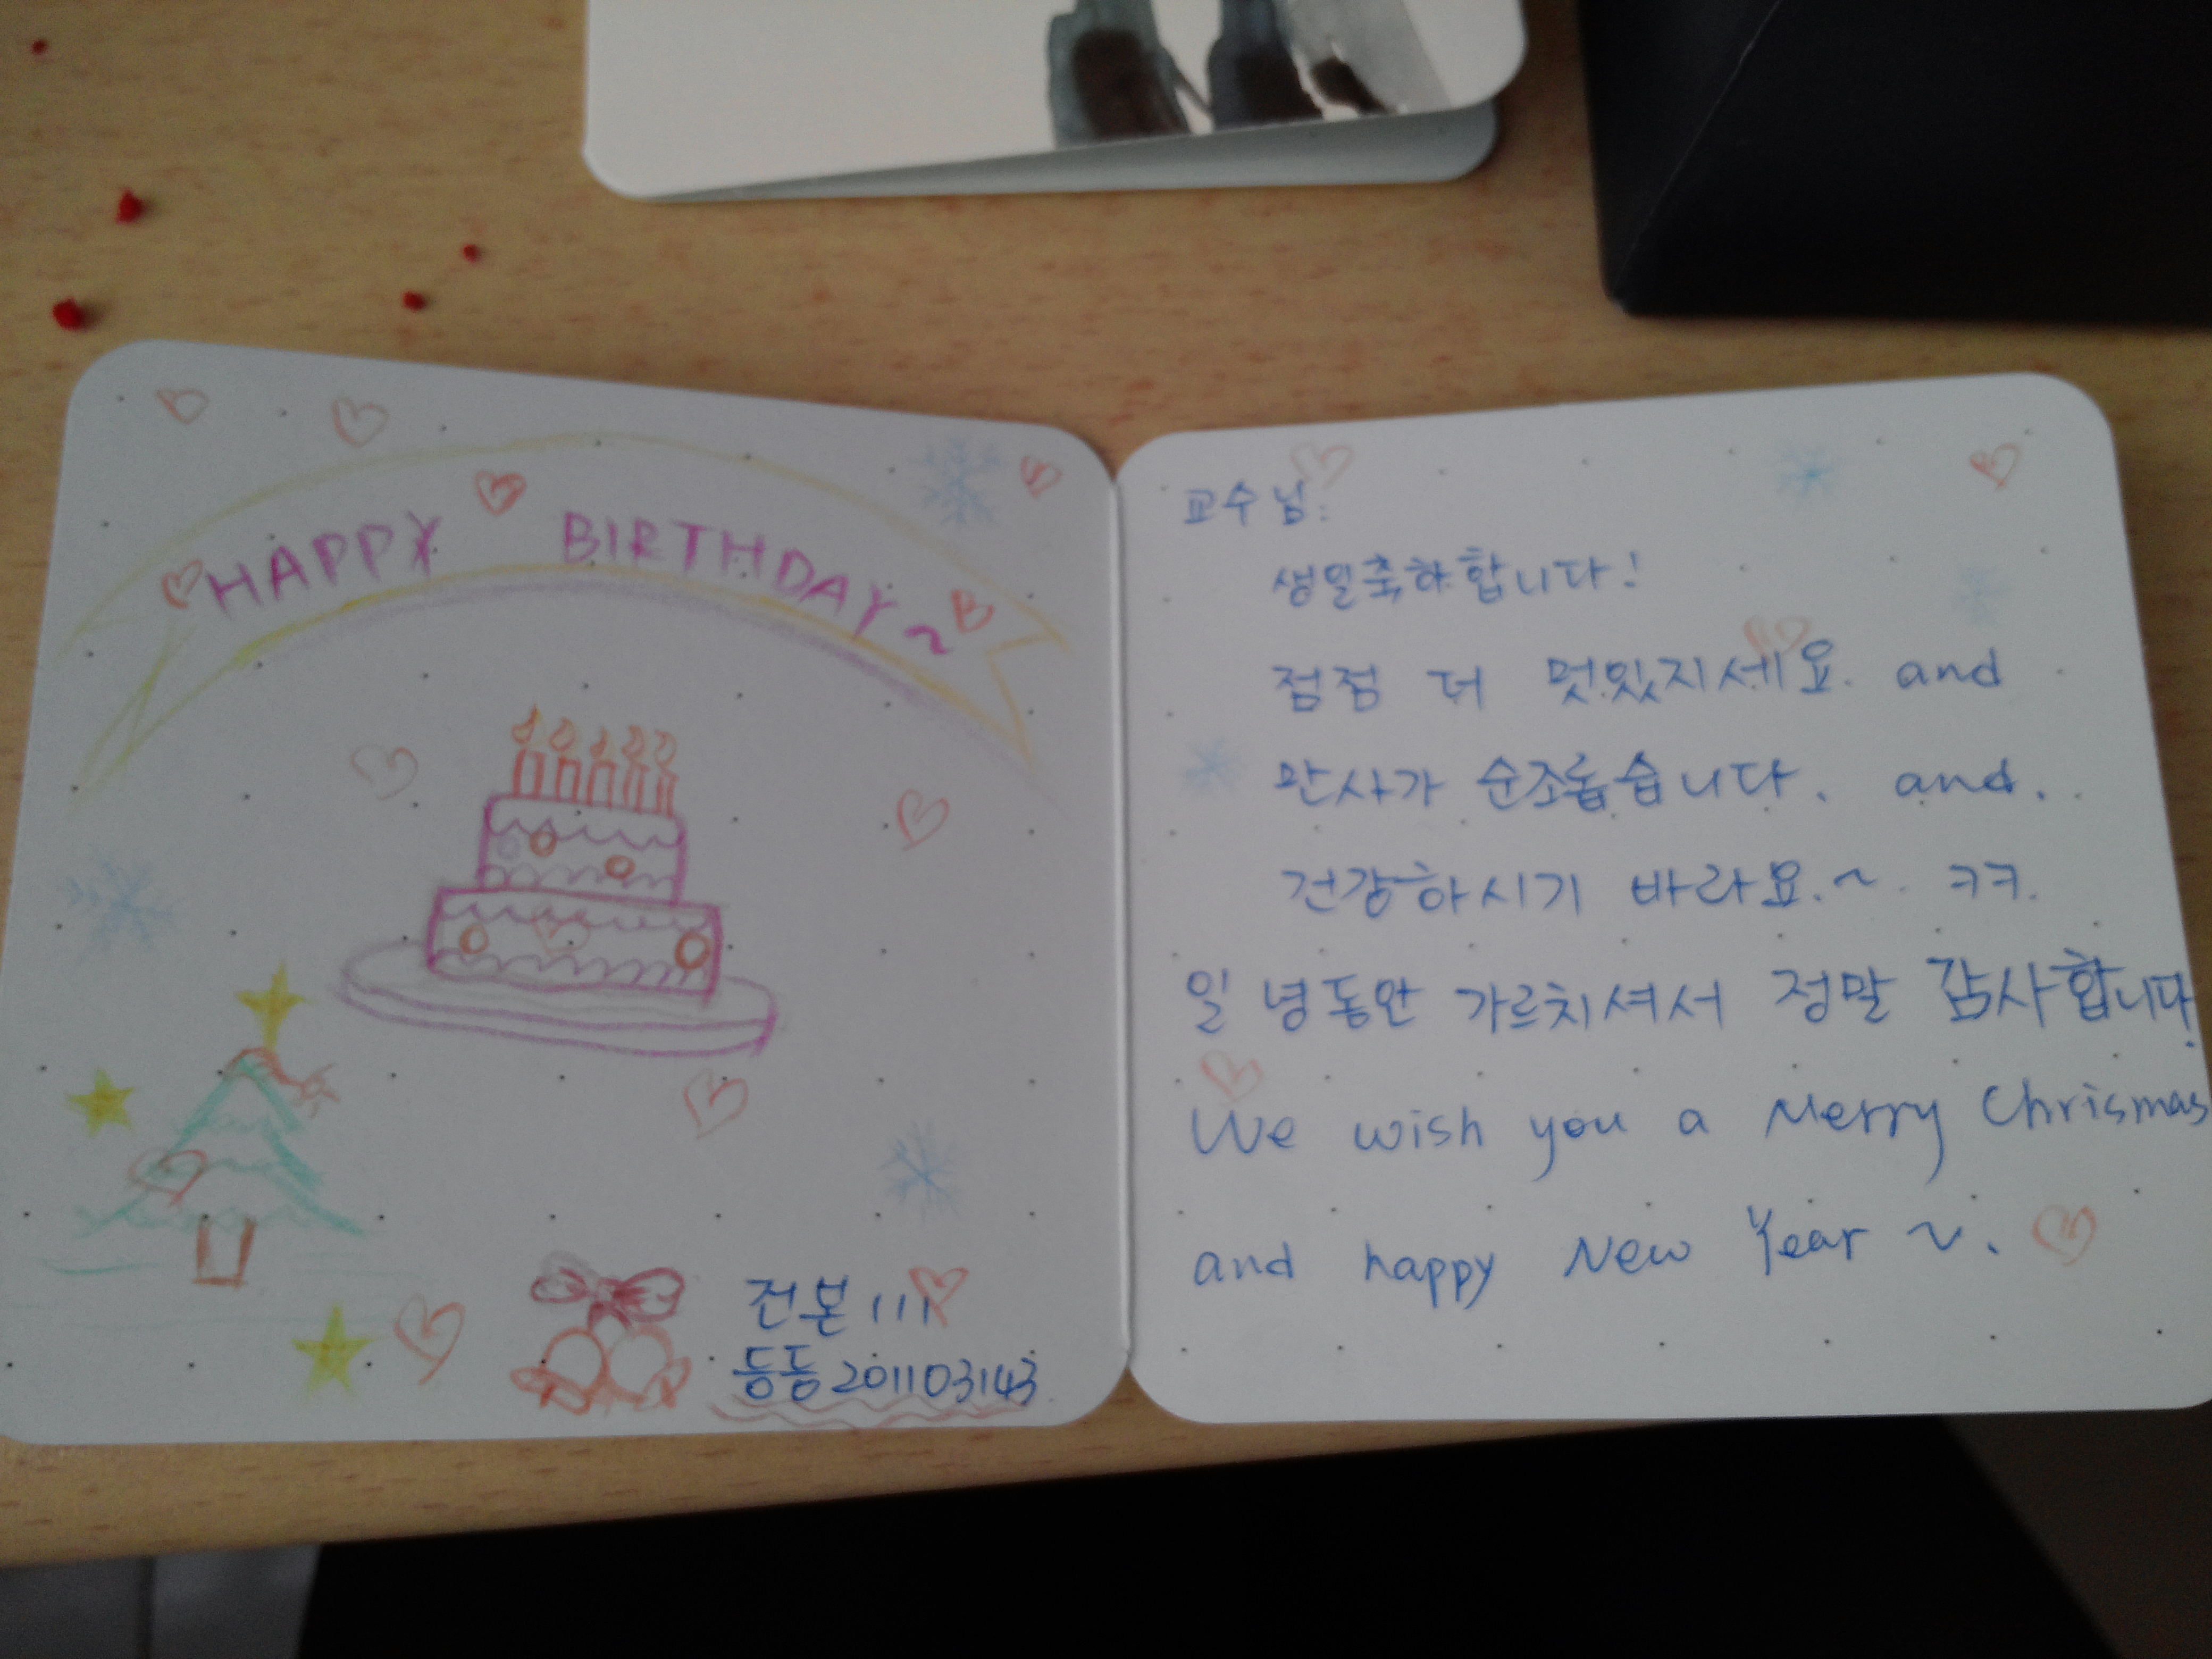 HAPPY BIRTHDAY~
전본111
등등201103143
교수님:
생일축하합니다!
점점 더 멋있지세요. and
만사가 순조롭습니다. and..
건강하시기 바라요.~. ㅋㅋ.
일 녕동안 가르치셔서 정말 감사합니다.
We wish you a Merry Chrismas
and happy New Year ~.